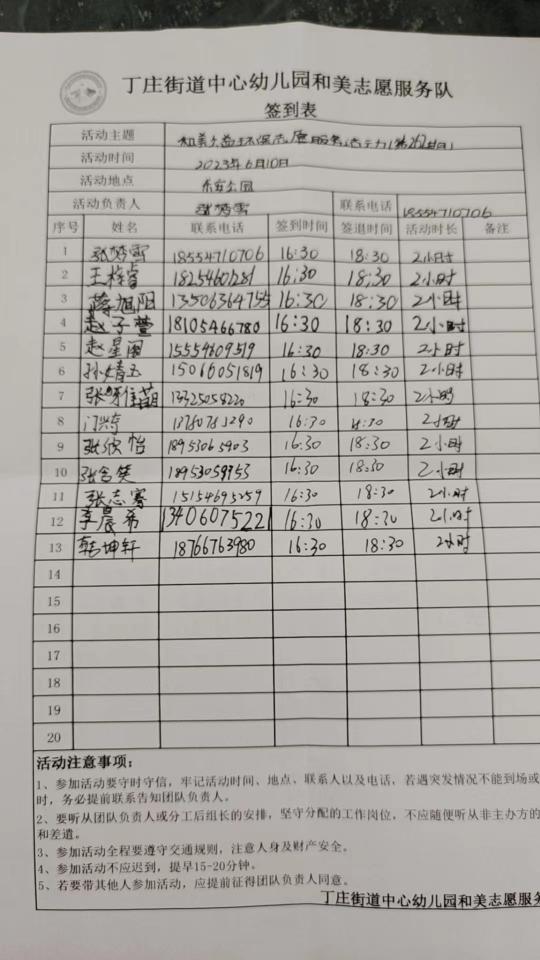 丁庄街道中心幼儿园和美志愿服务队
签到表
活动主题 和美公益环保志愿服务活动
活动时间 2023年6月10日
活动地点 公园
活动负责人 张梦雪 联系电话 18554710706
序号 姓名 联系电话 签到时间 签退时间 活动时长 备注
1 张梦雪 18554710706 16:30 18:30 2小时
2 王梓睿 18254601281 16:30 18:30 2小时
3 蒋旭阳 16:30 18:30 2小时
4 赵子萱 18105466780 16:30 18:30 2小时
5 赵星阁 15554609519 16:30 18:30 2小时
6 孙婧玉 15066051819 16:30 18:30 2小时
7 13325058220 16:30 18:30 2小时
8 门涛 16:30 18:30 2小时
9 张欣怡 18953065903 16:30 18:30 2小时
10 张含笑 16:30 18:30 2小时
11 张志骞 15154695259 16:30 18:30 2小时
12 李晨希 13406075221 16:30 18:30 2小时
13 韩坤轩 18766763980 16:30 18:30 2小时
14
15
16
17
18
19
20
活动注意事项：
1、参加活动要守时守信，牢记活动时间、地点、联系人以及电话，若遇突发情况不能到场或
时，务必提前联系告知团队负责人。
2、要听从团队负责人或分工后组长的安排，坚守分配的工作岗位，不应随便听从非主办方的
和差遣。
3、参加活动全程要遵守交通规则，注意人身及财产安全。
4、参加活动不应迟到，提早15-20分钟。
5、若要带其他人参加活动，应提前征得团队负责人同意。
丁庄街道中心幼儿园和美志愿服务